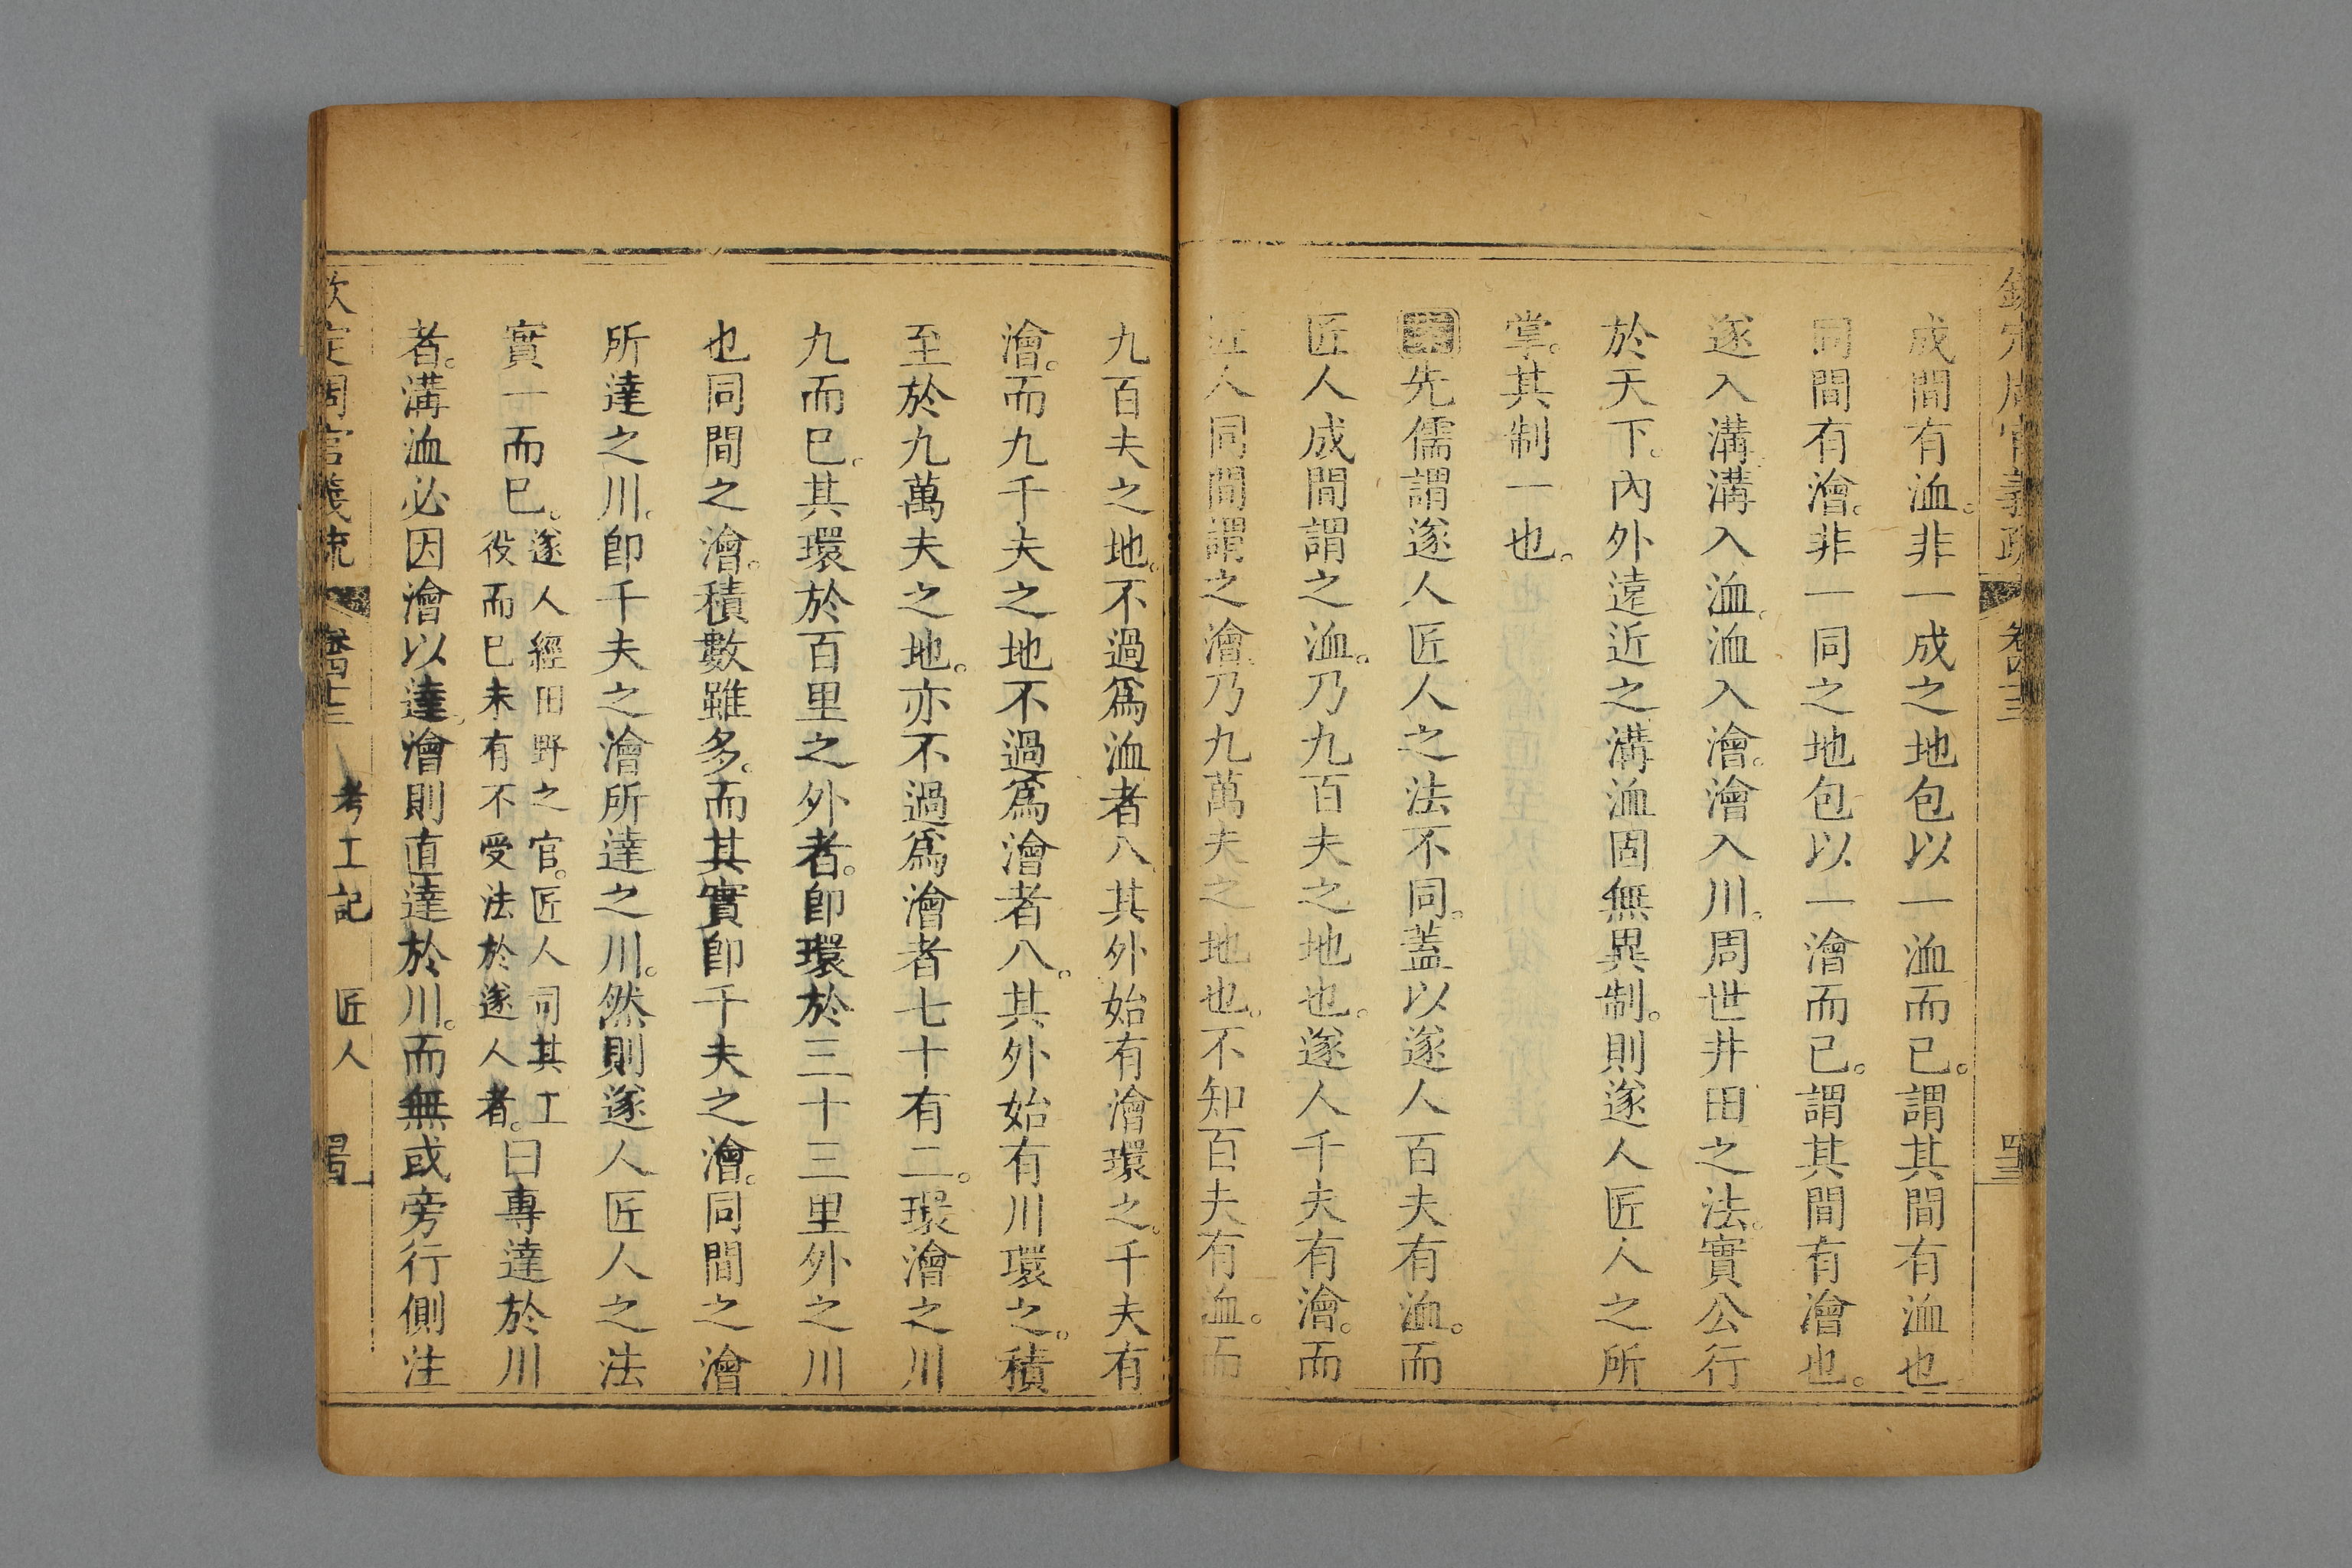 成間有洫。非一成之地包以一洫而已。謂其間有洫也
同間有澮。非一同之地包以一澮而已。謂其間有澮也。
遂入溝溝入洫。洫入澮。澮入川。周世井田之法。實公行
於天下。內外遠近之溝洫固無異制。則遂人匠人之所
掌。其制一也。
先儒謂遂人匠人之法不同。蓋以遂人百夫有洫。而
匠人成間謂之洫。乃九百夫之地也。遂人千夫有澮。而
匠人同間謂之澮。乃九萬夫之地也。不知百夫有洫。而
九百夫之地。不過爲洫者八。其外始有澮環之。千夫有
澮。而九千夫之地不過爲澮者八。其外始有川環之。積
至於九萬夫之地。亦不過爲澮者七十有二。環澮之川
九而已。其環於百里之外者。卽環於三十三里外之川
也同間之澮。積數雖多。而其實卽千夫之澮。同間之澮
所達之川。卽千夫之澮所達之川。然則遂人匠人之法
實一而已。遂人經田野之官。匠人司其工役而已未有不受法於遂人者。曰專達於川
者。溝洫必因澮以達。澮則直達於川。而無或旁行側注
欽定周官義疏 卷四十三 考工記 匠人